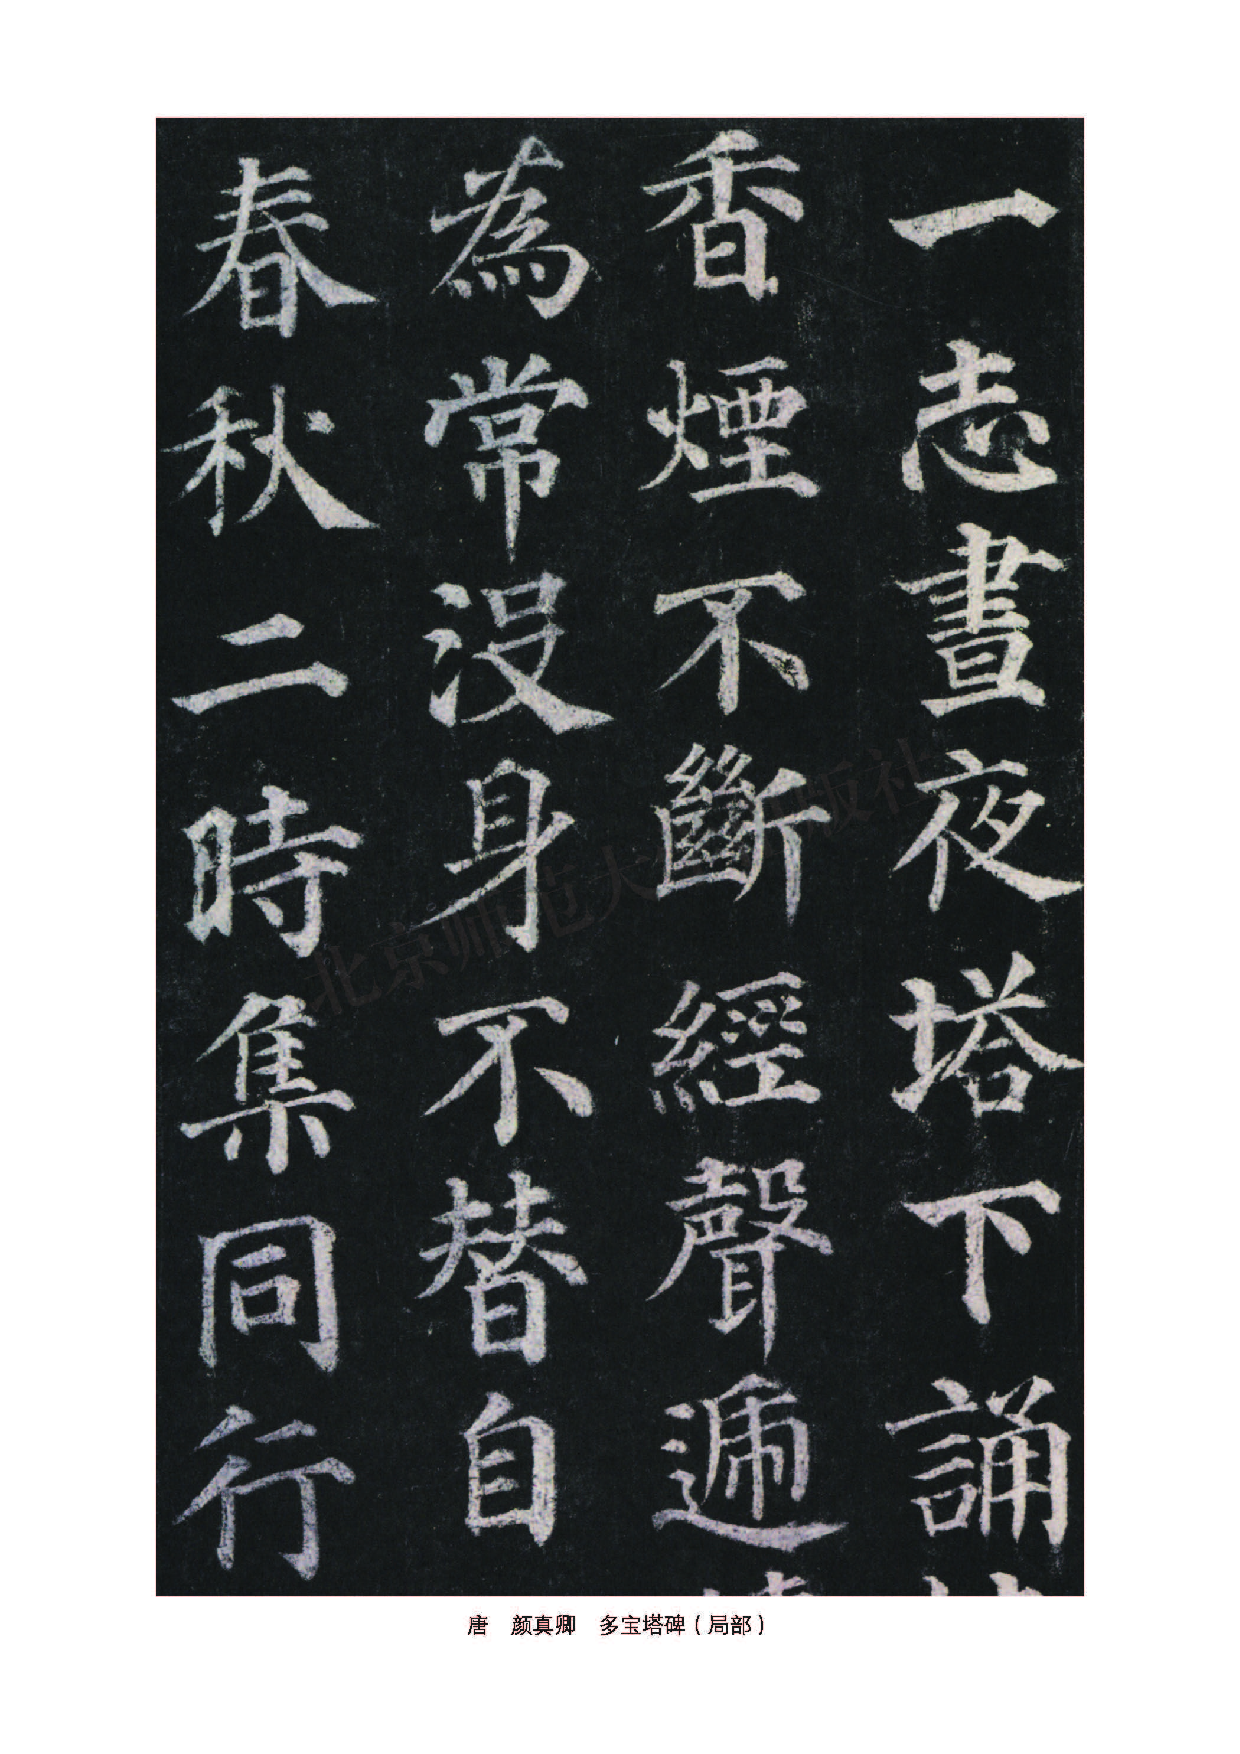 一志晝夜塔下誦
香煙不斷經聲遞
為常没身不替自
春秋二時集同行
唐 颜真卿 多宝塔碑（局部）
北京师范大学出版社